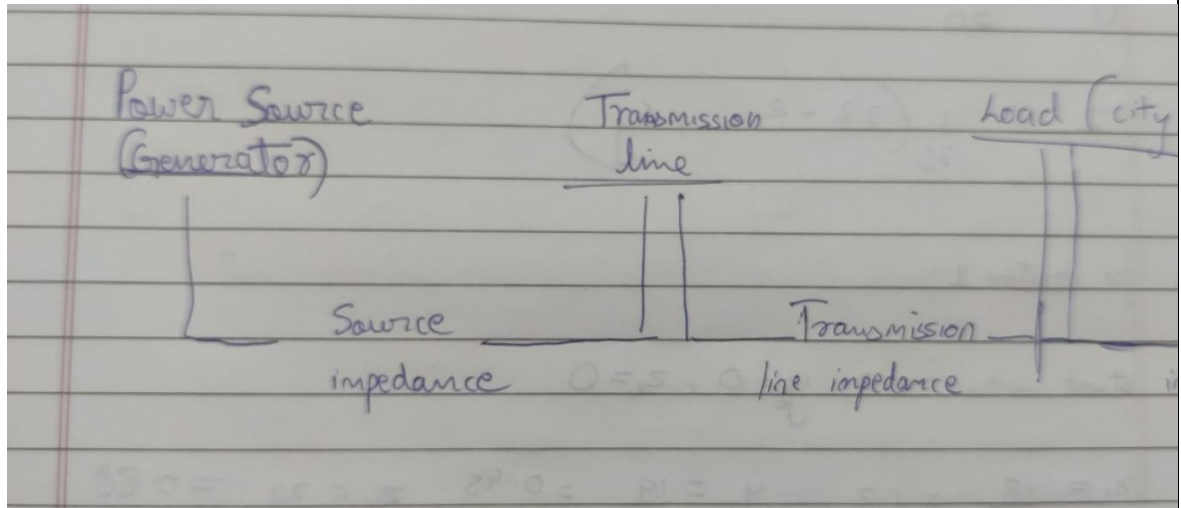 Power Source
(Generator)
Transmission
line
Load (city
Source
impedance
Transmission
line impedance